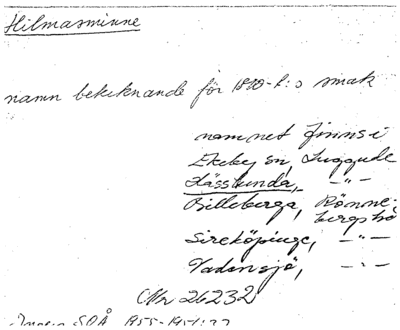 Hilmasminne
namn betecknande för 1800-t:s smak
namnet finns i
Ekeby sn, Luggude
Kässlunda, -"-
Billeberga, Rönne-
bergs hd
Sireköpinge, -"-
Vadensjö, -"-
Nr 26232
SOÅ 1955-1954:22